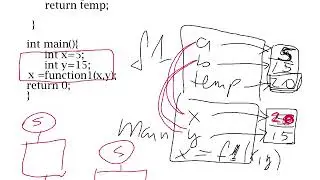 return temp;
}
int main(){
int x=5;
int y=15;
x =function1(x,y);
return 0;
}
f1
a 5
b 15
temp 20
main
x 20
y 15
x = f1(x,y)
5
5